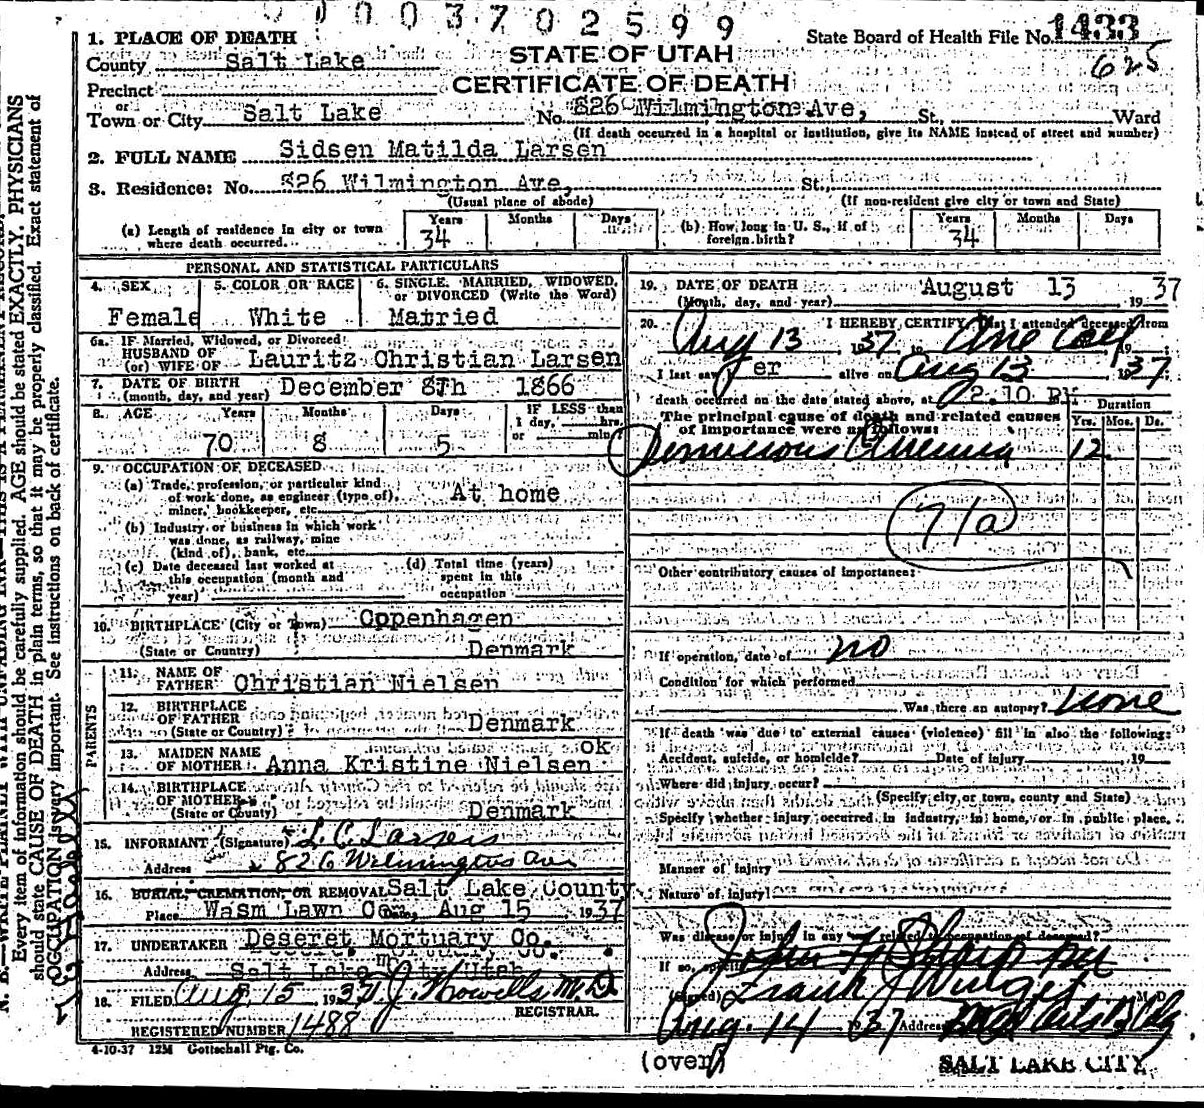 0003702599
State Board of Health File No. 1433
625
STATE OF UTAH
CERTIFICATE OF DEATH
1. PLACE OF DEATH
County Salt Lake
Precinct
or
Town or City Salt Lake No. 826 Wilmington Ave, St., Ward
(If death occurred in a hospital or institution, give its NAME instead of street and number)
2. FULL NAME Sidsen Matilda Larsen
3. Residence: No. 826 Wilmington Ave, St.,
(Usual place of abode) (If non-resident give city or town and State)
(a) Length of residence in city or town where death occurred Years 34 Months Days
(b) How long in U. S., if of foreign birth? Years 34 Months Days
PERSONAL AND STATISTICAL PARTICULARS
4. SEX Female
5. COLOR OR RACE White
6. SINGLE, MARRIED, WIDOWED, or DIVORCED (Write the Word) Married
6a. IF Married, Widowed, or Divorced
HUSBAND OF
(or) WIFE OF Lauritz Christian Larsen
7. DATE OF BIRTH
(month, day, and year) December 8Th 1866
8. AGE Years 70 Months 8 Days 5 IF LESS than 1 day, hrs. or min.
9. OCCUPATION OF DECEASED
(a) Trade, profession, or particular kind
of work done, as engineer (type of), At home
miner, bookkeeper, etc.
(b) Industry or business in which work
was done, as railway, mine
(kind of), bank, etc.
(c) Date deceased last worked at
this occupation (month and
year)
(d) Total time (years)
spent in this
occupation
10. BIRTHPLACE (City or Town) Copenhagen
(State or Country) Denmark
PARENTS
11. NAME OF
FATHER Christian Nielsen
12. BIRTHPLACE
OF FATHER
(State or Country) Denmark
13. MAIDEN NAME ok
OF MOTHER Anna Kristine Nielsen
14. BIRTHPLACE
OF MOTHER
(State or County) Denmark
15. INFORMANT (Signature) L. C. Larsen
Address 826 Wilmington Ave
16. BURIAL, CREMATION, OR REMOVAL Salt Lake County
Place Wasm Lawn Cem, Date Aug 15 1937
17. UNDERTAKER Deseret Mortuary Co.
Address Salt Lake City Utah
18. FILED Aug. 15 1937 T. J. Howells M.D.
REGISTRAR.
REGISTERED NUMBER 1488
4-10-37 12M Gottschall Ptg. Co.
19. DATE OF DEATH
(Month, day, and year) August 13, 1937
20. I HEREBY CERTIFY, That I attended deceased from
Aug 13 1937 to One Call 19
I last saw her alive on Aug 13 1937
death occurred on the date stated above, at 2.10 PM
The principal cause of death and related causes
of importance were as follows: Duration
Yrs. Mos. Ds.
Pernicious Anemia 12
71a
Other contributory causes of importance:
If operation, date of no
Condition for which performed
Was there an autopsy? none
If death was due to external causes (violence) fill in also the following:
Accident, suicide, or homicide? Date of injury 19
Where did injury occur?
(Specify city, or town, county and State)
Specify whether injury occurred in industry, in home, or in public place.
Manner of injury
Nature of injury
Was disease or injury in any way related to occupation of deceased?
If so, specify
(Signed) Frank J Winget M. D.
Aug. 14 1937 Address Med Arts Bldg
(over)
SALT LAKE CITY
N. B.—WRITE PLAINLY WITH UNFADING INK—THIS IS A PERMANENT RECORD.
Every item of information should be carefully supplied. AGE should be stated EXACTLY. PHYSICIANS
should state CAUSE OF DEATH in plain terms, so that it may be properly classified. Exact statement of
OCCUPATION is very important. See instructions on back of certificate.